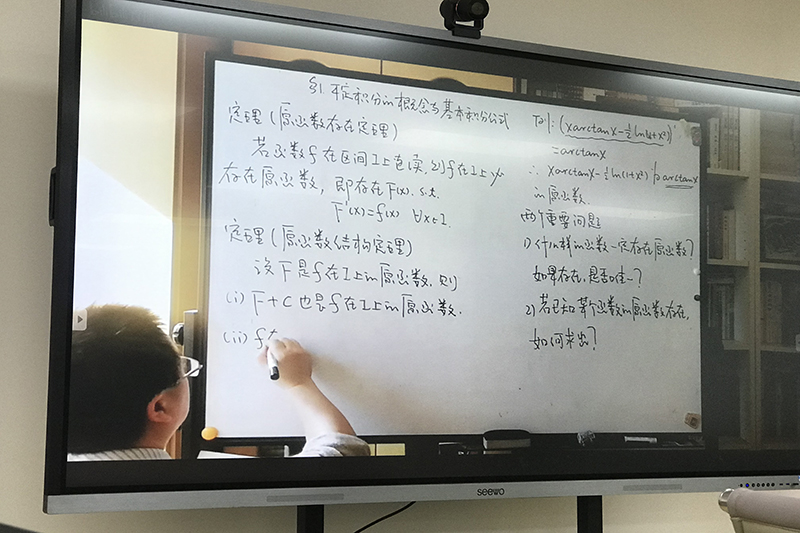 §1 不定积分的概念与基本积分公式
定理(原函数存在定理)
若函数f在区间I上连续,则f在I上
存在原函数,即存在F(x), s.t.
F'(x)=f(x) ∀x∈I.
定理(原函数结构定理)
设F是f在I上的原函数,则
(i) F+C也是f在I上的原函数.
(ii) f在
(xarctanx-½ln(1+x²))'
=arctanx
∴ xarctanx-½ln(1+x²)为arctanx
的原函数.
两个重要问题
1) 什么样的函数一定存在原函数?
如果存在,是否唯一?
2) 若已知某个函数的原函数存在,
如何求出?
seewo